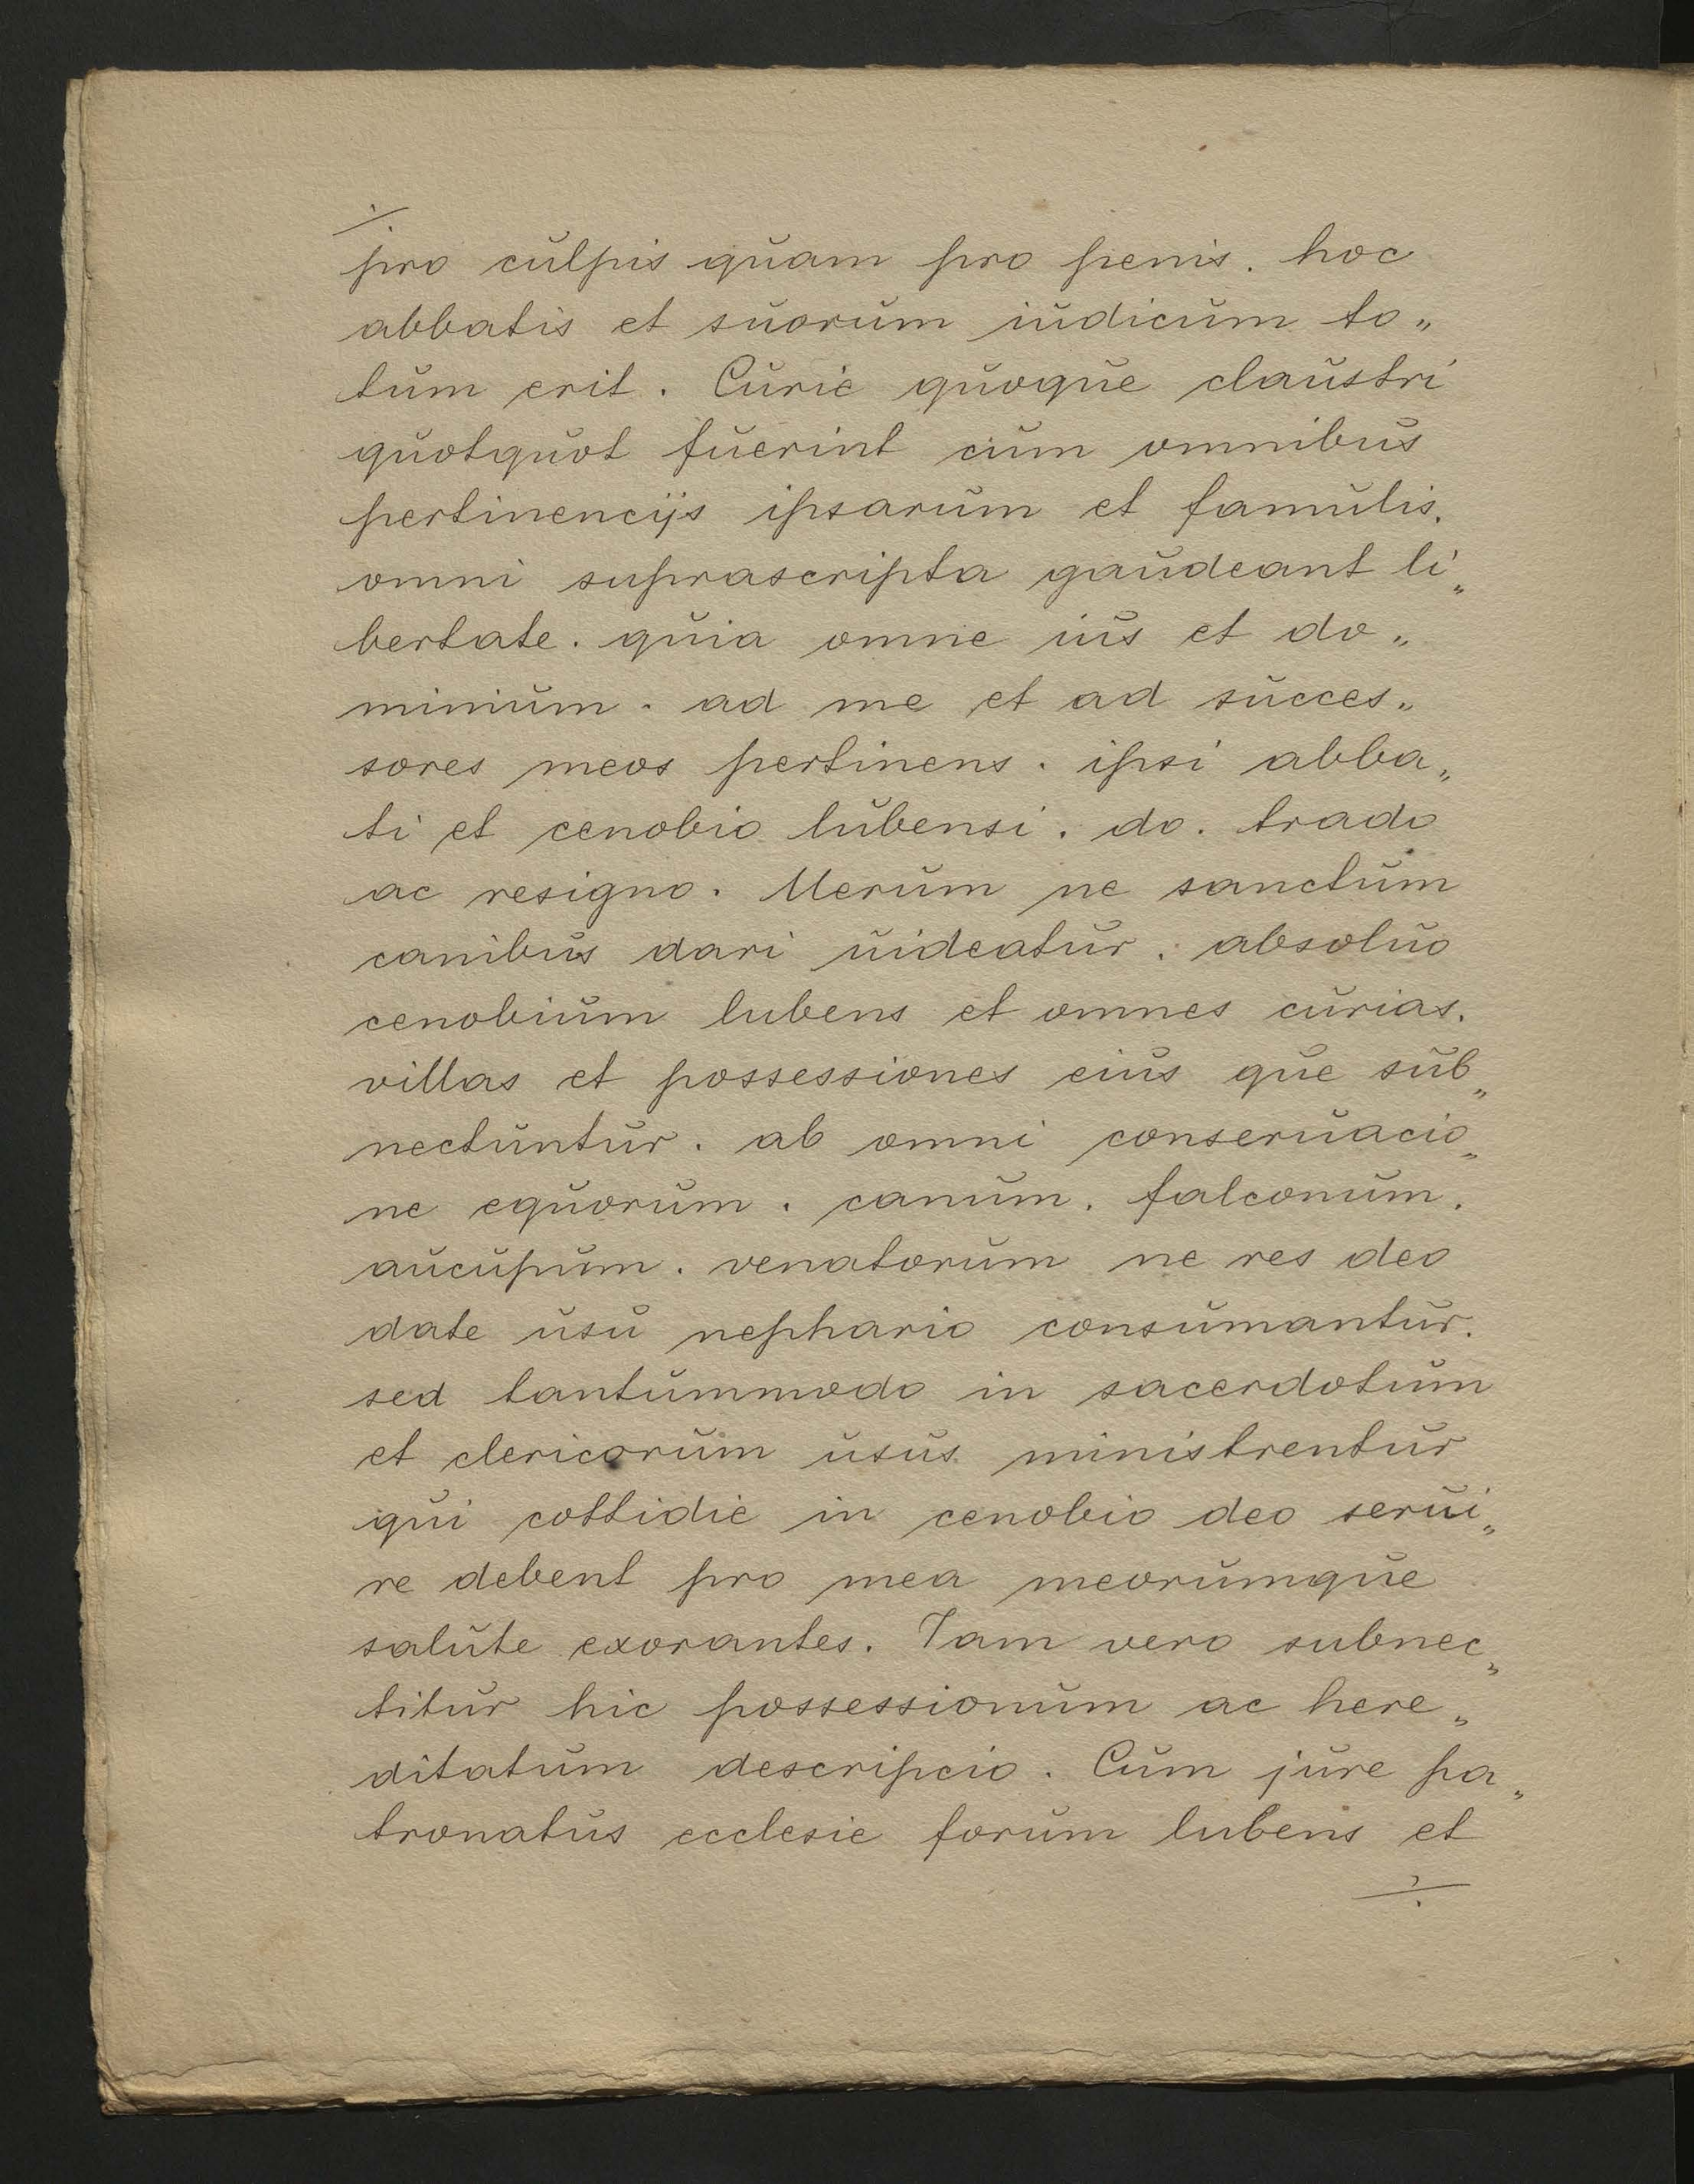 pro culpis quam pro penis. hoc
abbatis et suorum iudicum to„
tum erit. Curie quoque claustri
quotquot fuerint cum omnibus
pertinencijs ipsarum et famulis.
omni suprascripta gaudeant li„
bertate. quia omne ius et do„
minium. ad me et ad succes„
sores meos pertinens. ipsi abba„
ti et cenobio lubensi. do. trado
ac resigno. Uerum ne sanctum
canibus dari uideatur. absoluo
cenobium lubens et omnes curias.
villas et possessiones eius que sub„
nectuntur. ab omni conseruacio„
ne equorum. canum. falconum.
aucupum. venatorum ne res deo
date usu nephario consumantur.
sed tantummodo in sacerdotum
et clericorum usus ministrentur
qui cottidie in cenobio deo serui„
re debent pro mea meorumque
salute exorantes. Iam vero subnec„
titur hic possessionum ac here„
ditatum descripcio. Cum jure pa„
tronatus ecclesie forum lubens et